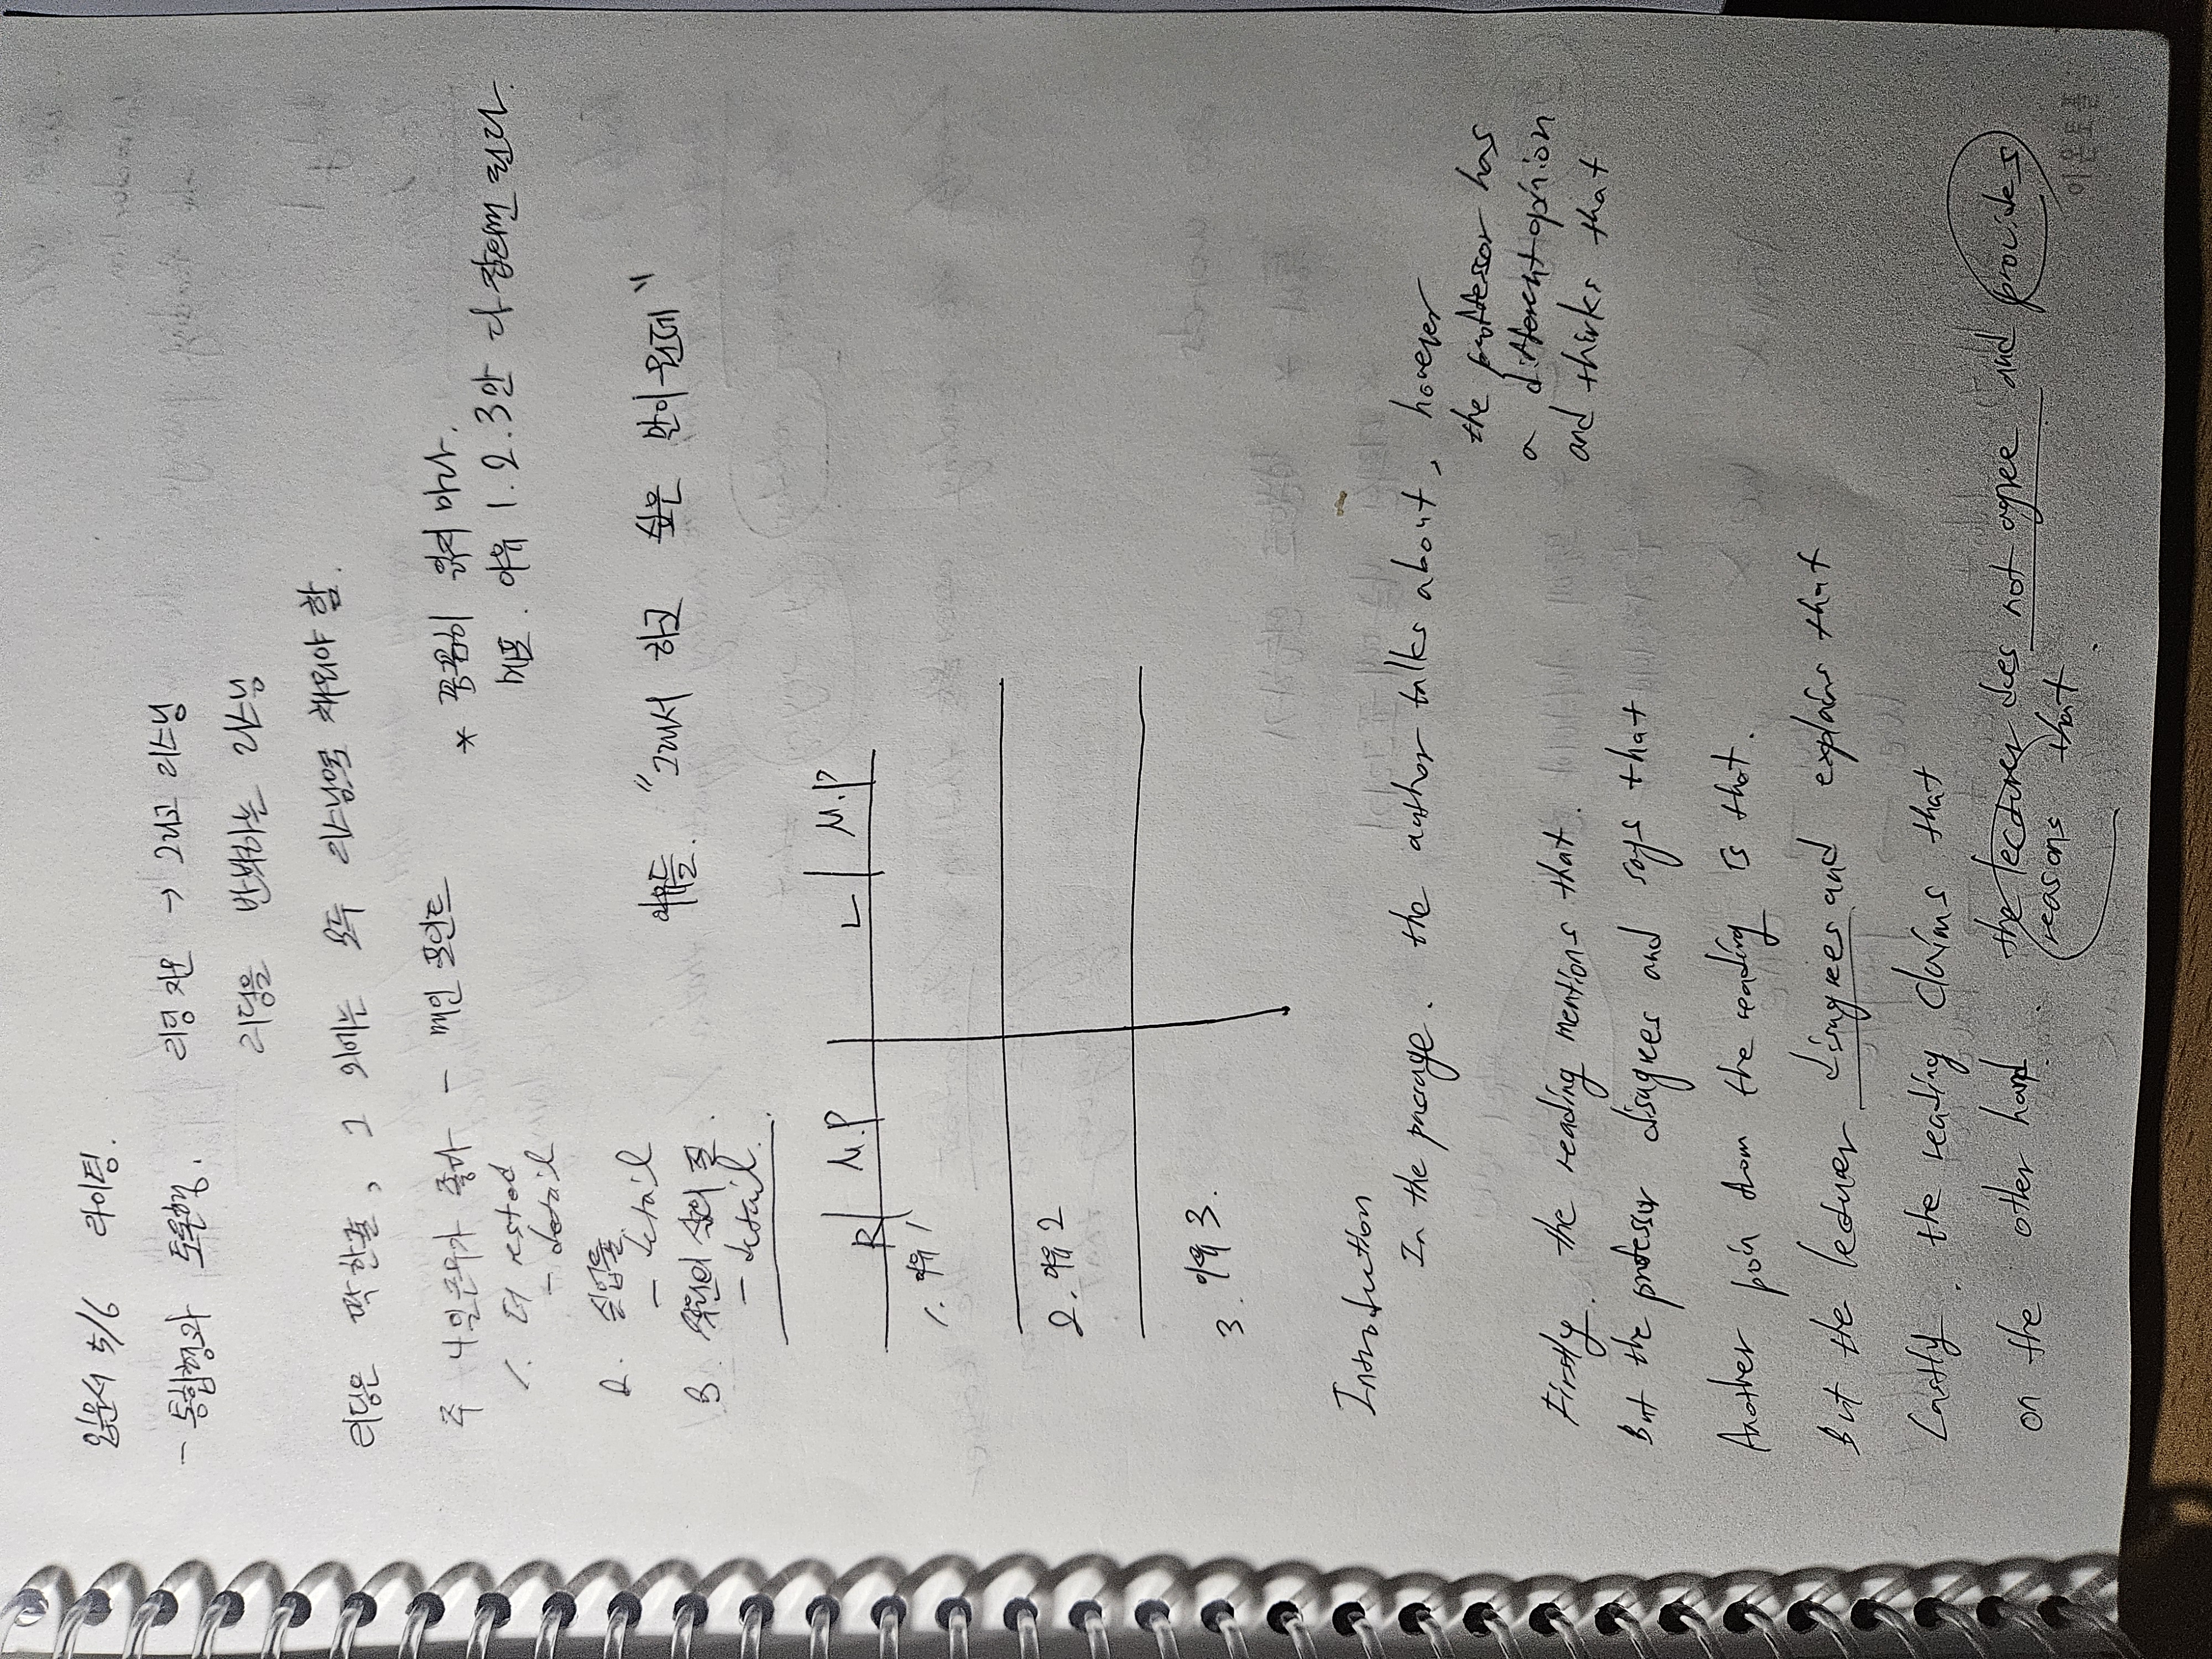 임윤서 5/6 라이팅.
- 통합형과 토론형.
리딩 지문 → 그리고 리스닝
리딩을 반박하는 리스닝
리딩은 딱 한줄, 그 외에는 모두 리스닝으로 채워야 함.
주 4일근무가 좋다 - 메인 포인트
* 꼼꼼히 읽지 마라.
메포. 이유 1. 2. 3만 다 잡으면 된다.
1. 더 rested
- detail
2. 실업률
- detail
3. 직원의 삶의 질.
- detail.
이유들. "그래서 하고 싶은 말이 뭔데"
R M.P L M.P
1. 이유 1
2. 이유 2
3. 이유 3.
Introduction
In the passage. the author talks about, however
the professor has
a different opinion
and thinks that
Firstly. the reading mentions that.
But the professor disagrees and says that
Another poin from the reading is that.
But the lecturer disagrees and explains that
Lastly. the reading claims that
on the other hand. the lecturer does not agree and provides
reasons that.